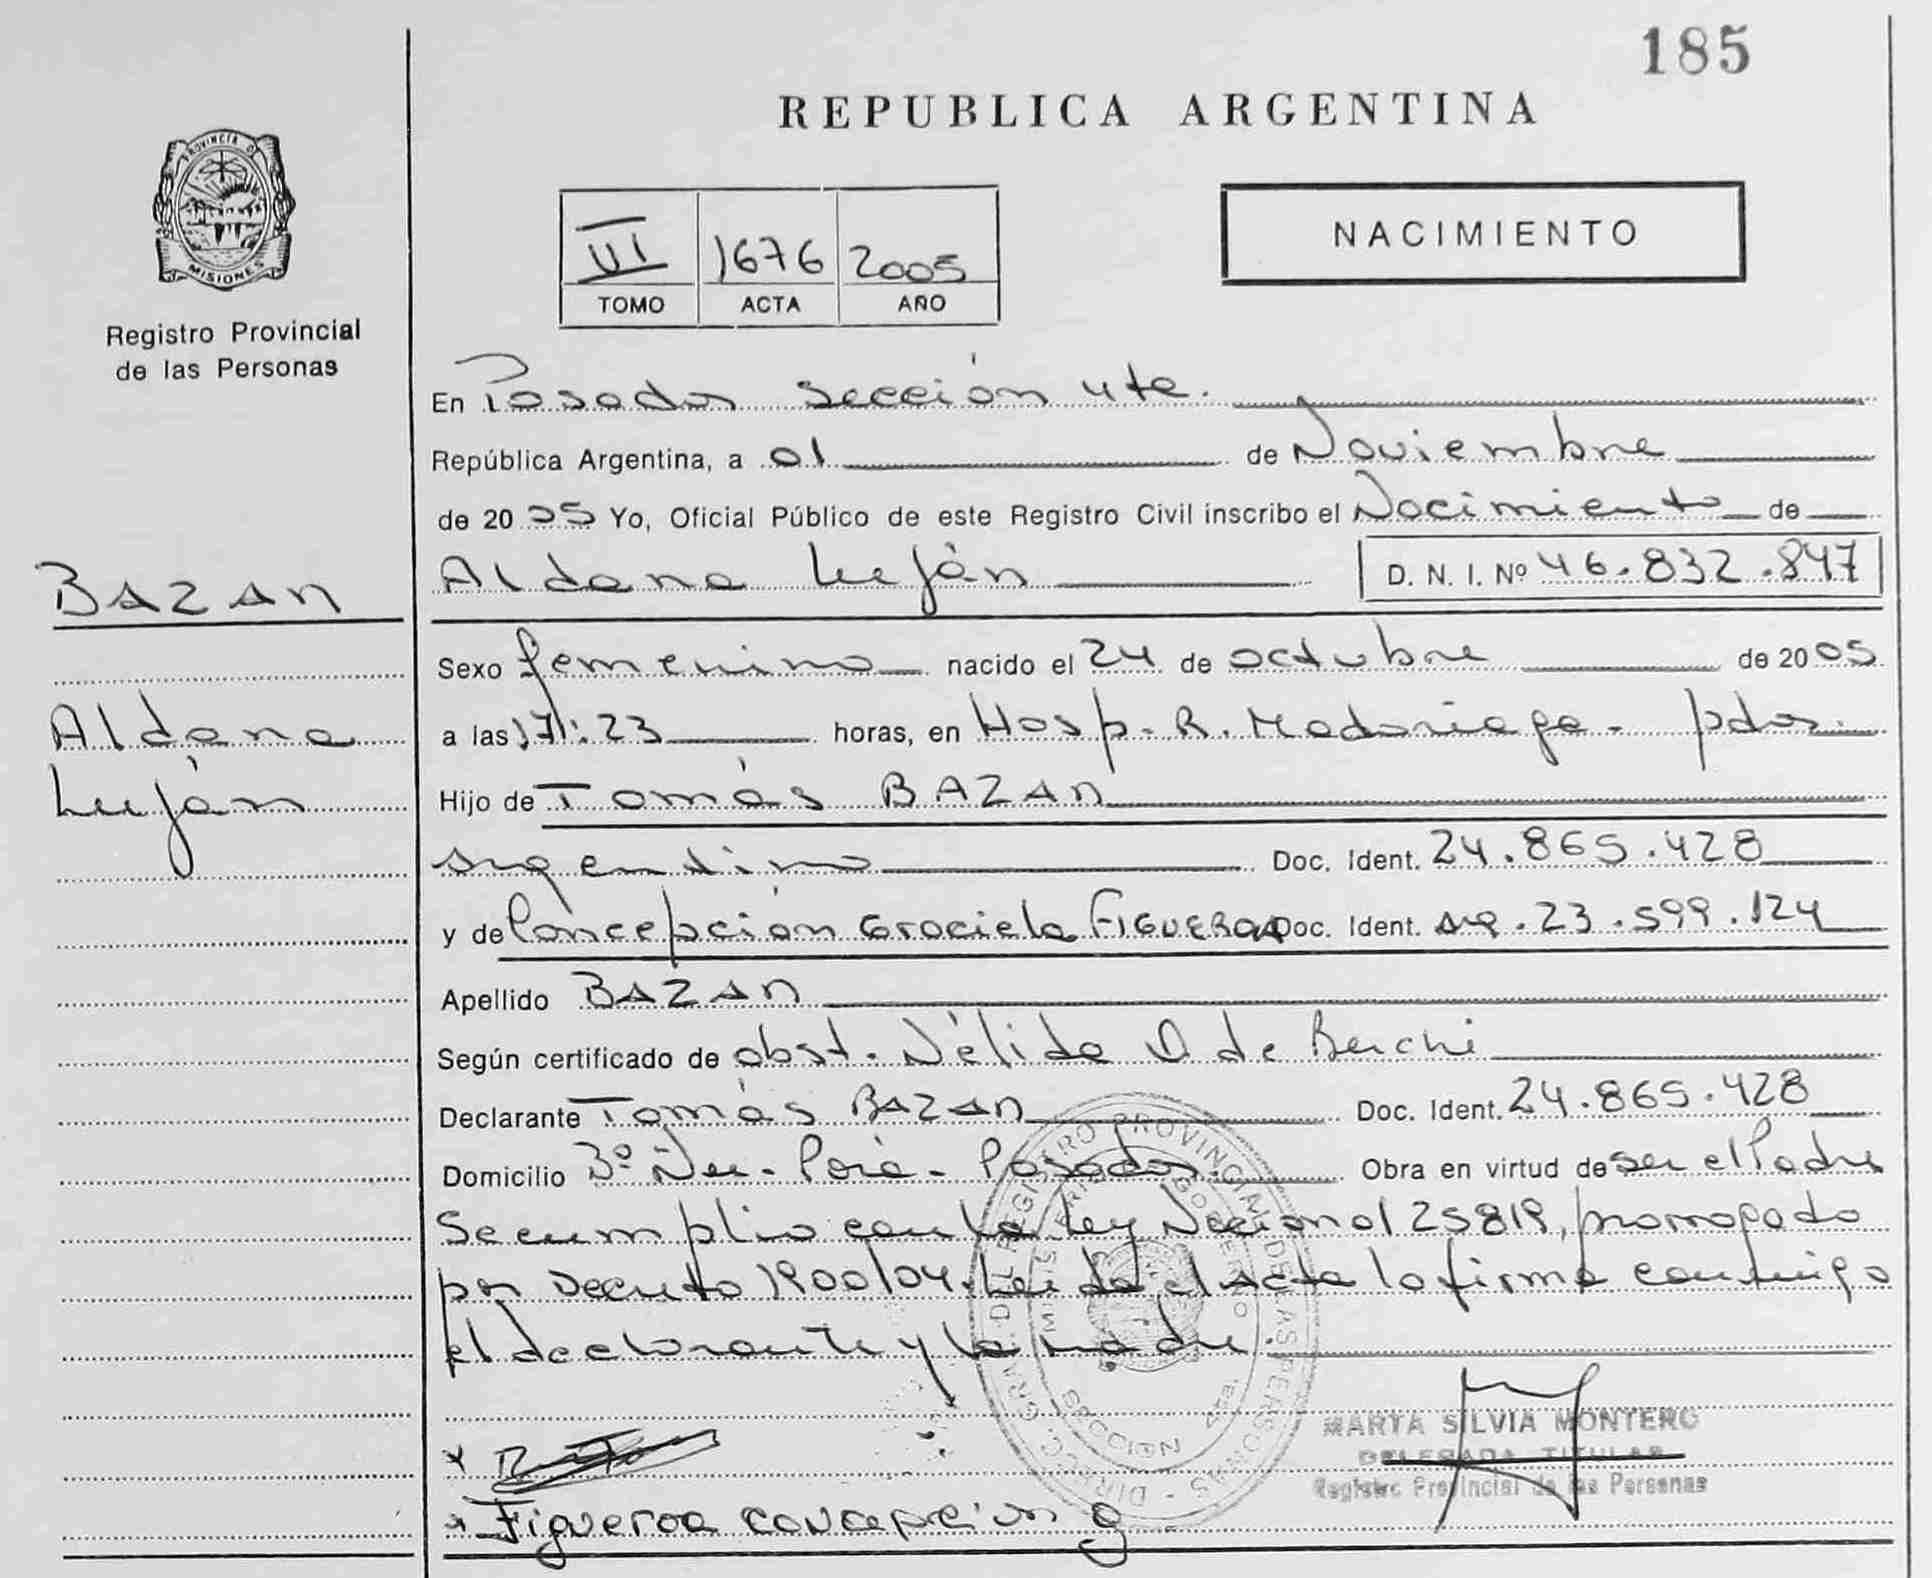 185
REPUBLICA ARGENTINA
PROVINCIA DE
MISIONES
Registro Provincial
de las Personas
VI 1676 2005
TOMO ACTA AÑO
NACIMIENTO
En Posadas sección 4ta.
República Argentina, a 01 de Noviembre
de 2005 Yo, Oficial Público de este Registro Civil inscribo el Nacimiento de
BAZAN
Aldana Luján D. N. I. Nº 46.832.847
Sexo femenino nacido el 24 de octubre de 2005
Aldana
Luján
a las 17:23 horas, en Hosp. R. Madariaga - pdas.
Hijo de Tomás BAZAN
argentino Doc. Ident. 24.865.428
y de Concepción Graciela FIGUEROA Doc. Ident. arg. 23.599.124
Apellido BAZAN
Según certificado de obst. Nélida D de Berchi
Declarante Tomás BAZAN Doc. Ident. 24.865.428
Domicilio Bº Ñu - Porá - Posadas. Obra en virtud de ser el Padre
Se cumplio con la Ley Nacional 25819, prorrogado
por Decreto 1900/04. Leida el acta lo firma conmigo
el declarante y la madre.
MARTA SILVIA MONTERO
DELEGADA TITULAR
Registro Provincial de las Personas
x
x Figueroa concepcion g
DIRECC. GRAL. DEL REGISTRO PROVINCIAL DE LAS PERSONAS